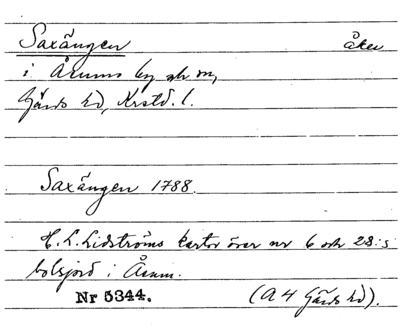 Saxängen åker
i Årums by o. sn,
Gärds hd, Krstd. l.
Saxängen 1788.
H. L. Lidströms kartor över nr 6 och 28:s
bolsjord i Årum.
Nr 5344. (A 4 Gärds hd).